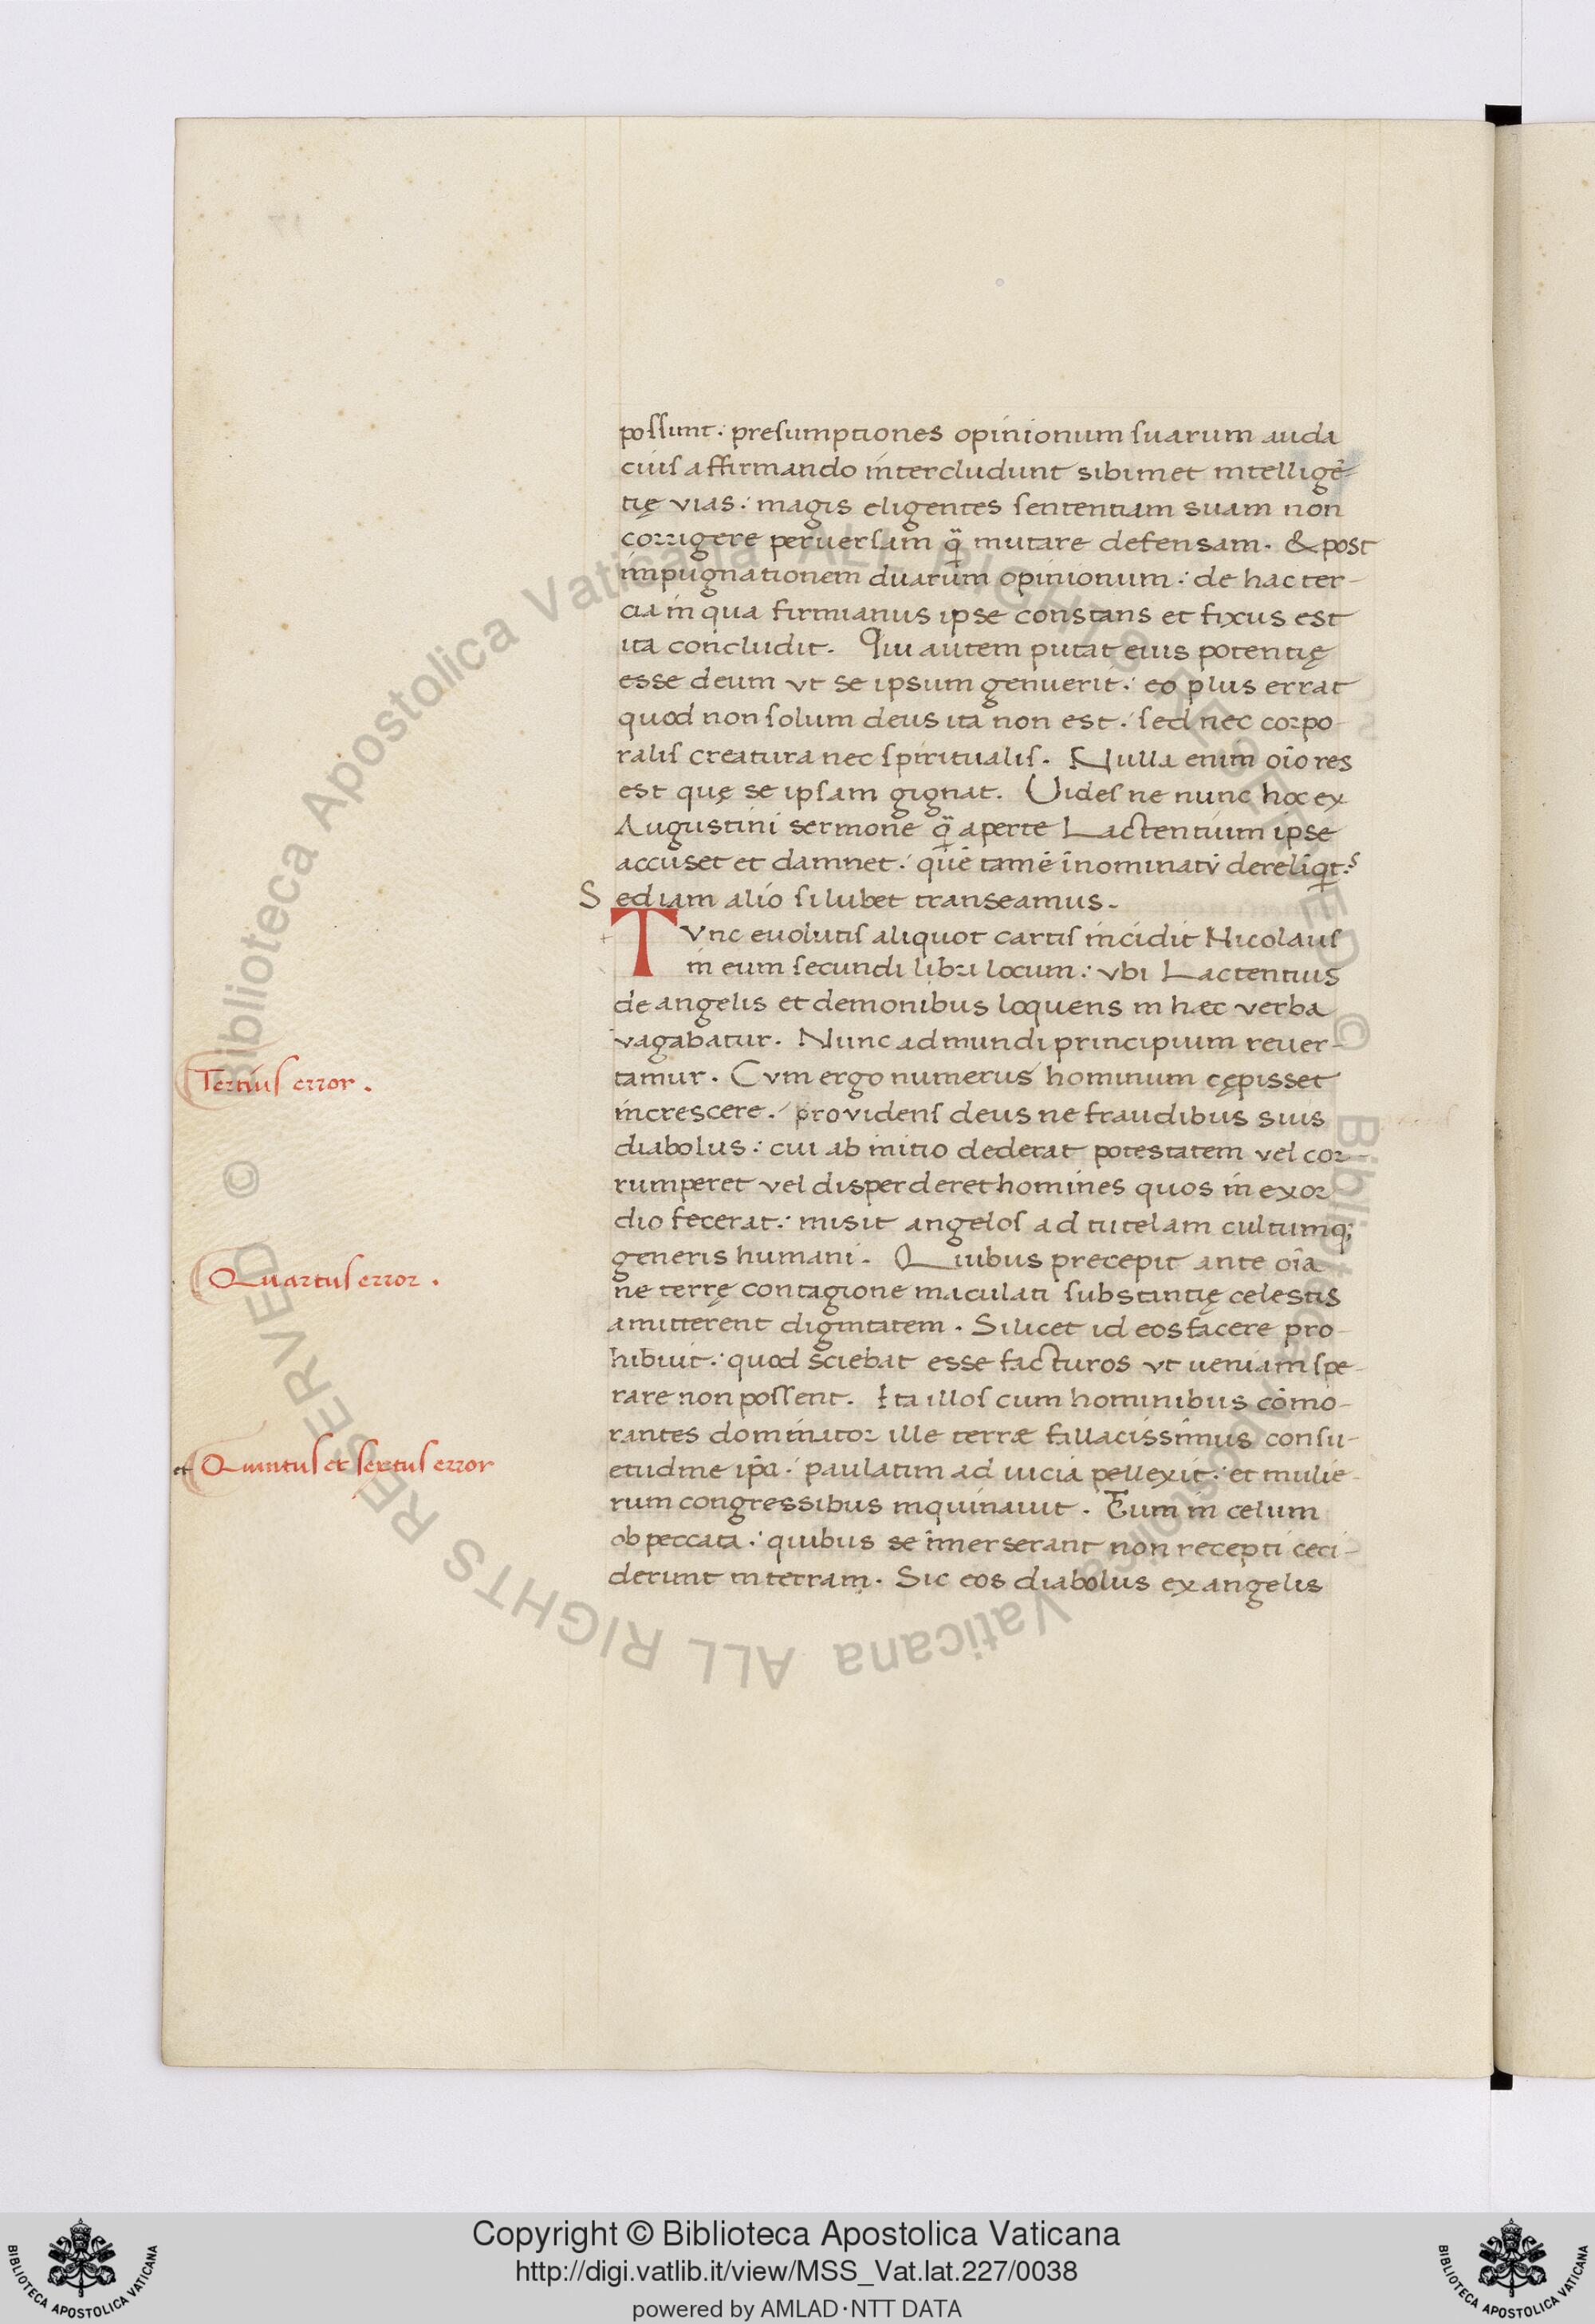 possunt: presumptiones opinionum suarum auda
cius affirmando intercludunt sibimet intelligē-
tię vias: magis eligentes sententiam suam non
corrigere perversam q̈ mutare defensam. & post
impugnationem duarum opinionum: de hac ter-
cia in qua firmianus ipse constans et fixus est
ita concludit. Qui autem putat eius potentię
esse deum vt se ipsum genuerit: eo plus errat
quod non solum deus ita non est: sed nec corpo-
ralis creatura nec spiritualis. Nulla enim oīo res
est quę se ipsam gignat. Uides ne nunc hoc ex
Augustini sermone q̈ aperte Lactentium ipse
accuset et damnet: quē tamē īnominatū derelīqt.
S ed iam alio si lubet transeamus.
Tvnc euolutis aliquot cartis incidit Nicolaus
in eum secundi libri locum: vbi Lactentius
de angelis et demonibus loquens in hæc verba
vagabatur. Nunc ad mundi principium reuer-
tamur. Cvm ergo numerus hominum cępisset
Tertius error.
increscere: providens deus ne fraudibus suis
diabolus: cui ab initio dederat potestatem vel cor-
rumperet vel disperderet homines quos in exor
dio fecerat: misit angelos ad tutelam cultumq;
generis humani. Quibus precepit ante oīa
Quartus error.
ne terrę contagione maculati substantię celestis
amitterent dignitatem. Silicet id eos facere pro-
hibuit: quod sciebat esse facturos vt ueniam spe-
rare non possent. Ita illos cum hominibus cōmo-
rantes dominator ille terræ fallacissimus consu-
et Quintus et sextus error
etudine ip̄a: paulatim ad uicia pellexit: et mulie-
rum congressibus inquinauit. Tum in celum
ob peccata: quibus se īmerserant non recepti ceci-
derunt in terram. Sic eos diabolus ex angelis
© Biblioteca Apostolica Vaticana ALL RIGHTS RESERVED
© Biblioteca Apostolica Vaticana ALL RIGHTS RESERVED
Copyright © Biblioteca Apostolica Vaticana
http://digi.vatlib.it/view/MSS_Vat.lat.227/0038
powered by AMLAD·NTT DATA
BIBLIOTECA APOSTOLICA VATICANA
BIBLIOTECA APOSTOLICA VATICANA